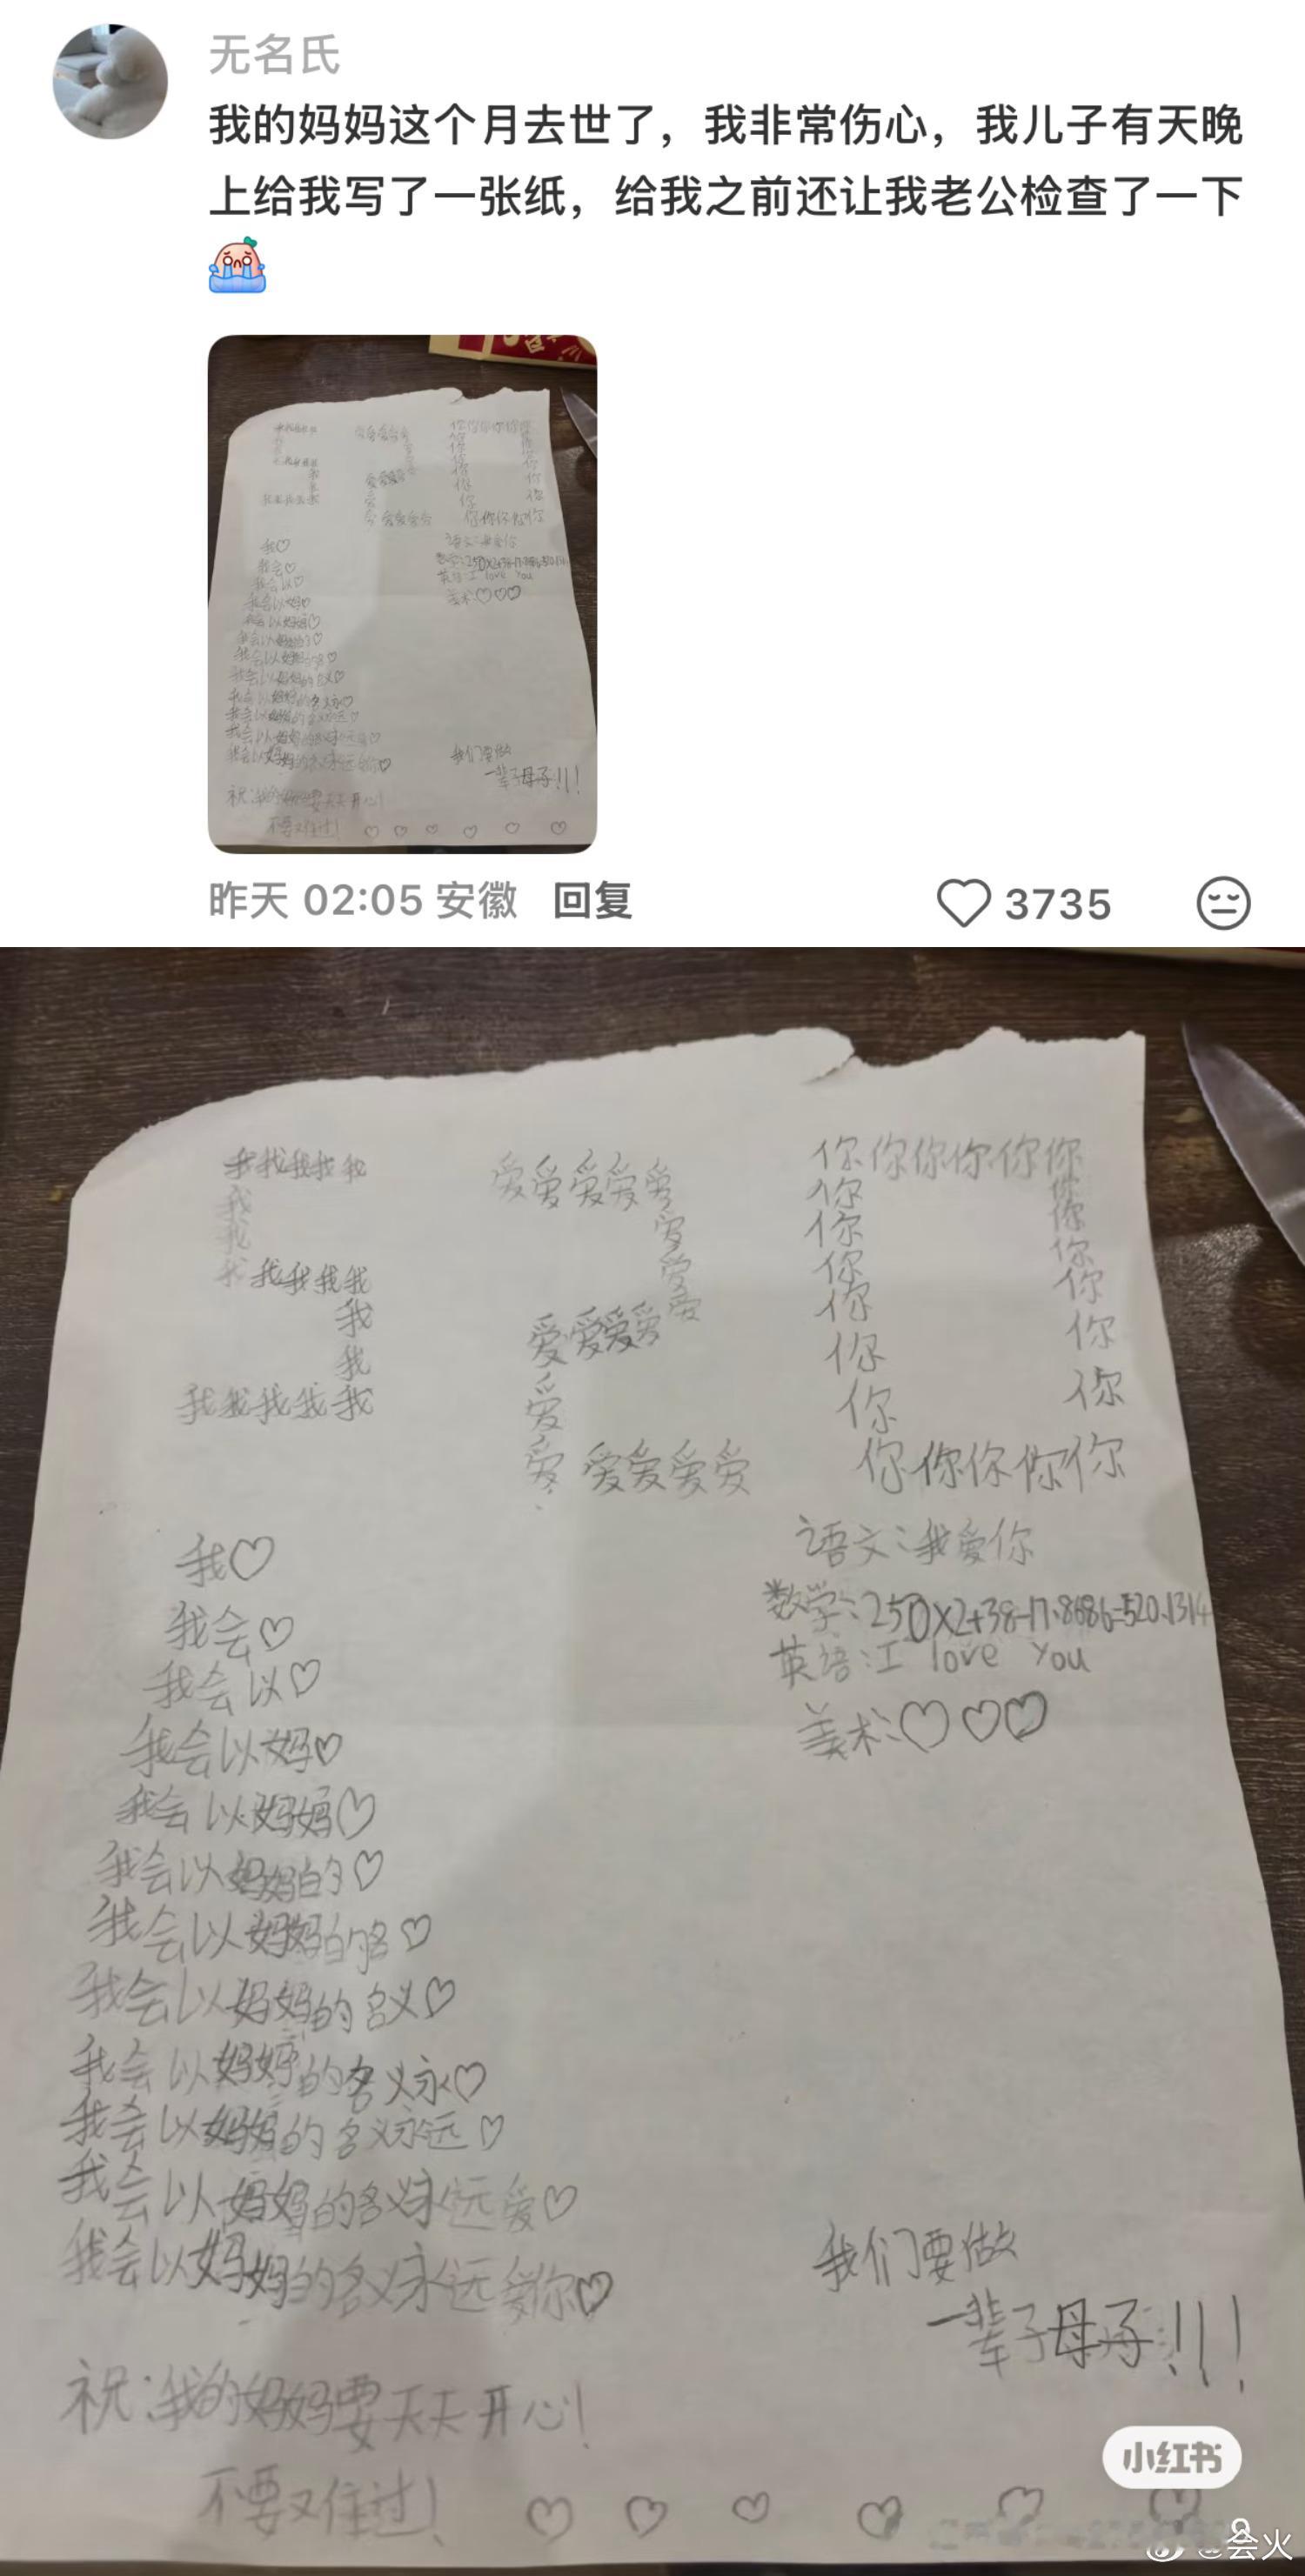 无名氏
我的妈妈这个月去世了，我非常伤心，我儿子有天晚
上给我写了一张纸，给我之前还让我老公检查了一下
昨天 02:05 安徽 回复
3735
我我我我我
我
我
我我我我我
我
我
我我我我我
爱爱爱爱爱
爱
爱
爱
爱爱爱爱
爱
爱爱爱爱爱
你你你你你你
你 你
你 你
你 你
你 你
你 你
你 你
你你你你你
我♡
我会♡
我会以♡
我会以妈♡
我会以妈妈♡
我会以妈妈的♡
我会以妈妈的名♡
我会以妈妈的名义♡
我会以妈妈的名义永♡
我会以妈妈的名义永远♡
我会以妈妈的名义永远爱♡
我会以妈妈的名义永远爱你♡
语文：我爱你
数学：250×2+38-17.8686=520.1314
英语：I love You
美术：♡♡♡
我们要做
一辈子母子!!!
祝：我的妈妈要天天开心!
不要又难过!
小红书
会火